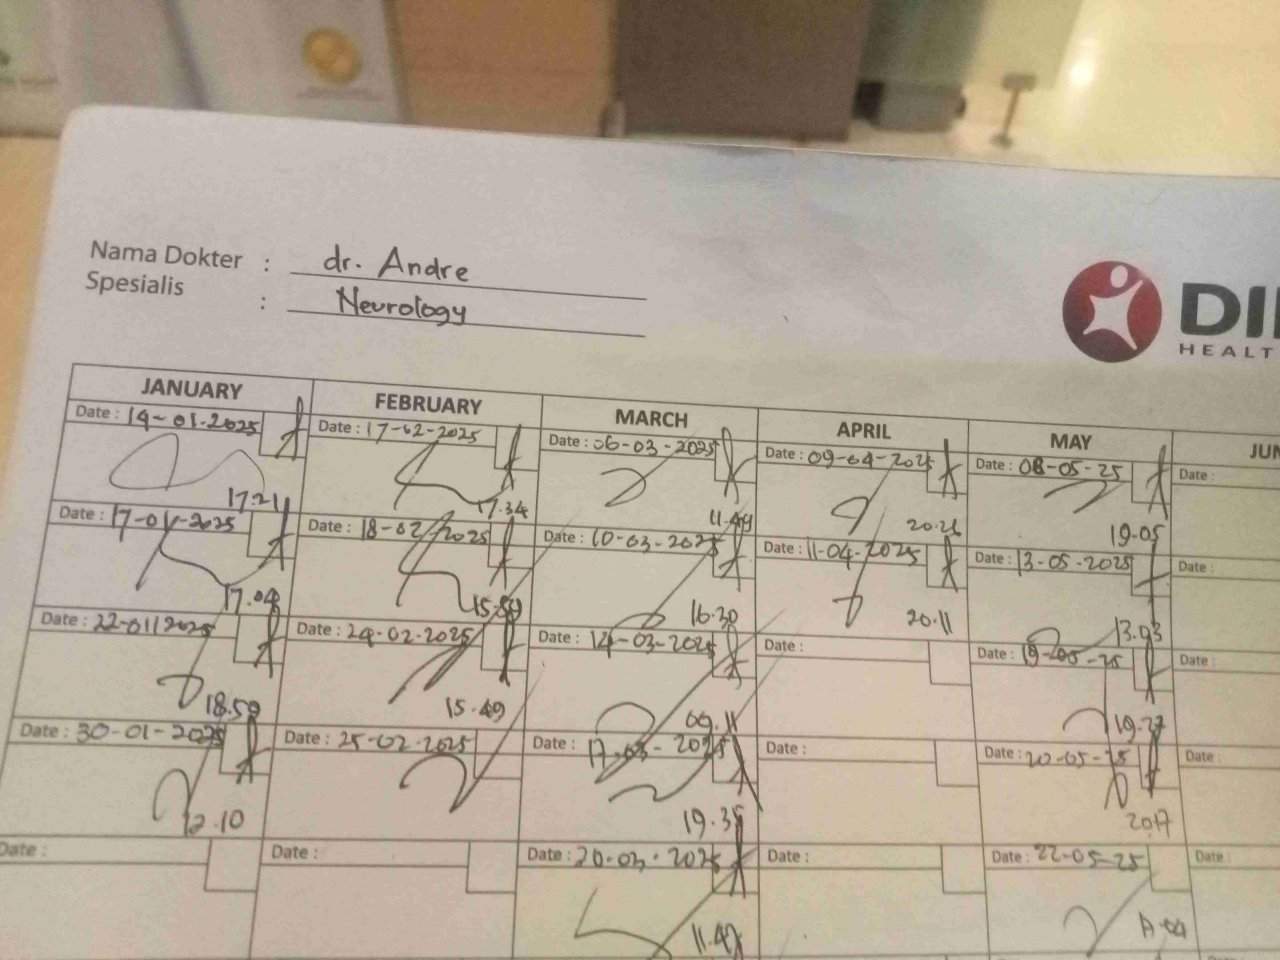 Nama Dokter : dr. Andre
Spesialis : Neurology
DI
HEALT
JANUARY FEBRUARY MARCH APRIL MAY JUN
Date : 14-01-2025 Date : 17-02-2025 Date : 06-03-2025 Date : 09-04-2025 Date : 08-05-25 Date :
17.21 17.34 11.49 20.26 19.05
Date : 17-01-2025 Date : 18-02-2025 Date : 10-03-2025 Date : 11-04-2025 Date : 13-05-2025 Date :
17.04 15.59 16.30 20.11 13.03
Date : 22-01-2025 Date : 24-02-2025 Date : 14-03-2025 Date : Date : 19-05-25 Date :
18.59 15.49 09.11 19.27
Date : 30-01-2025 Date : 25-02-2025 Date : 17-03-2025 Date : Date : 20-05-25 Date :
12.10 19.35 20.17
Date : Date : Date : 20-03-2025 Date : Date : 22-05-25 Date :
11.47